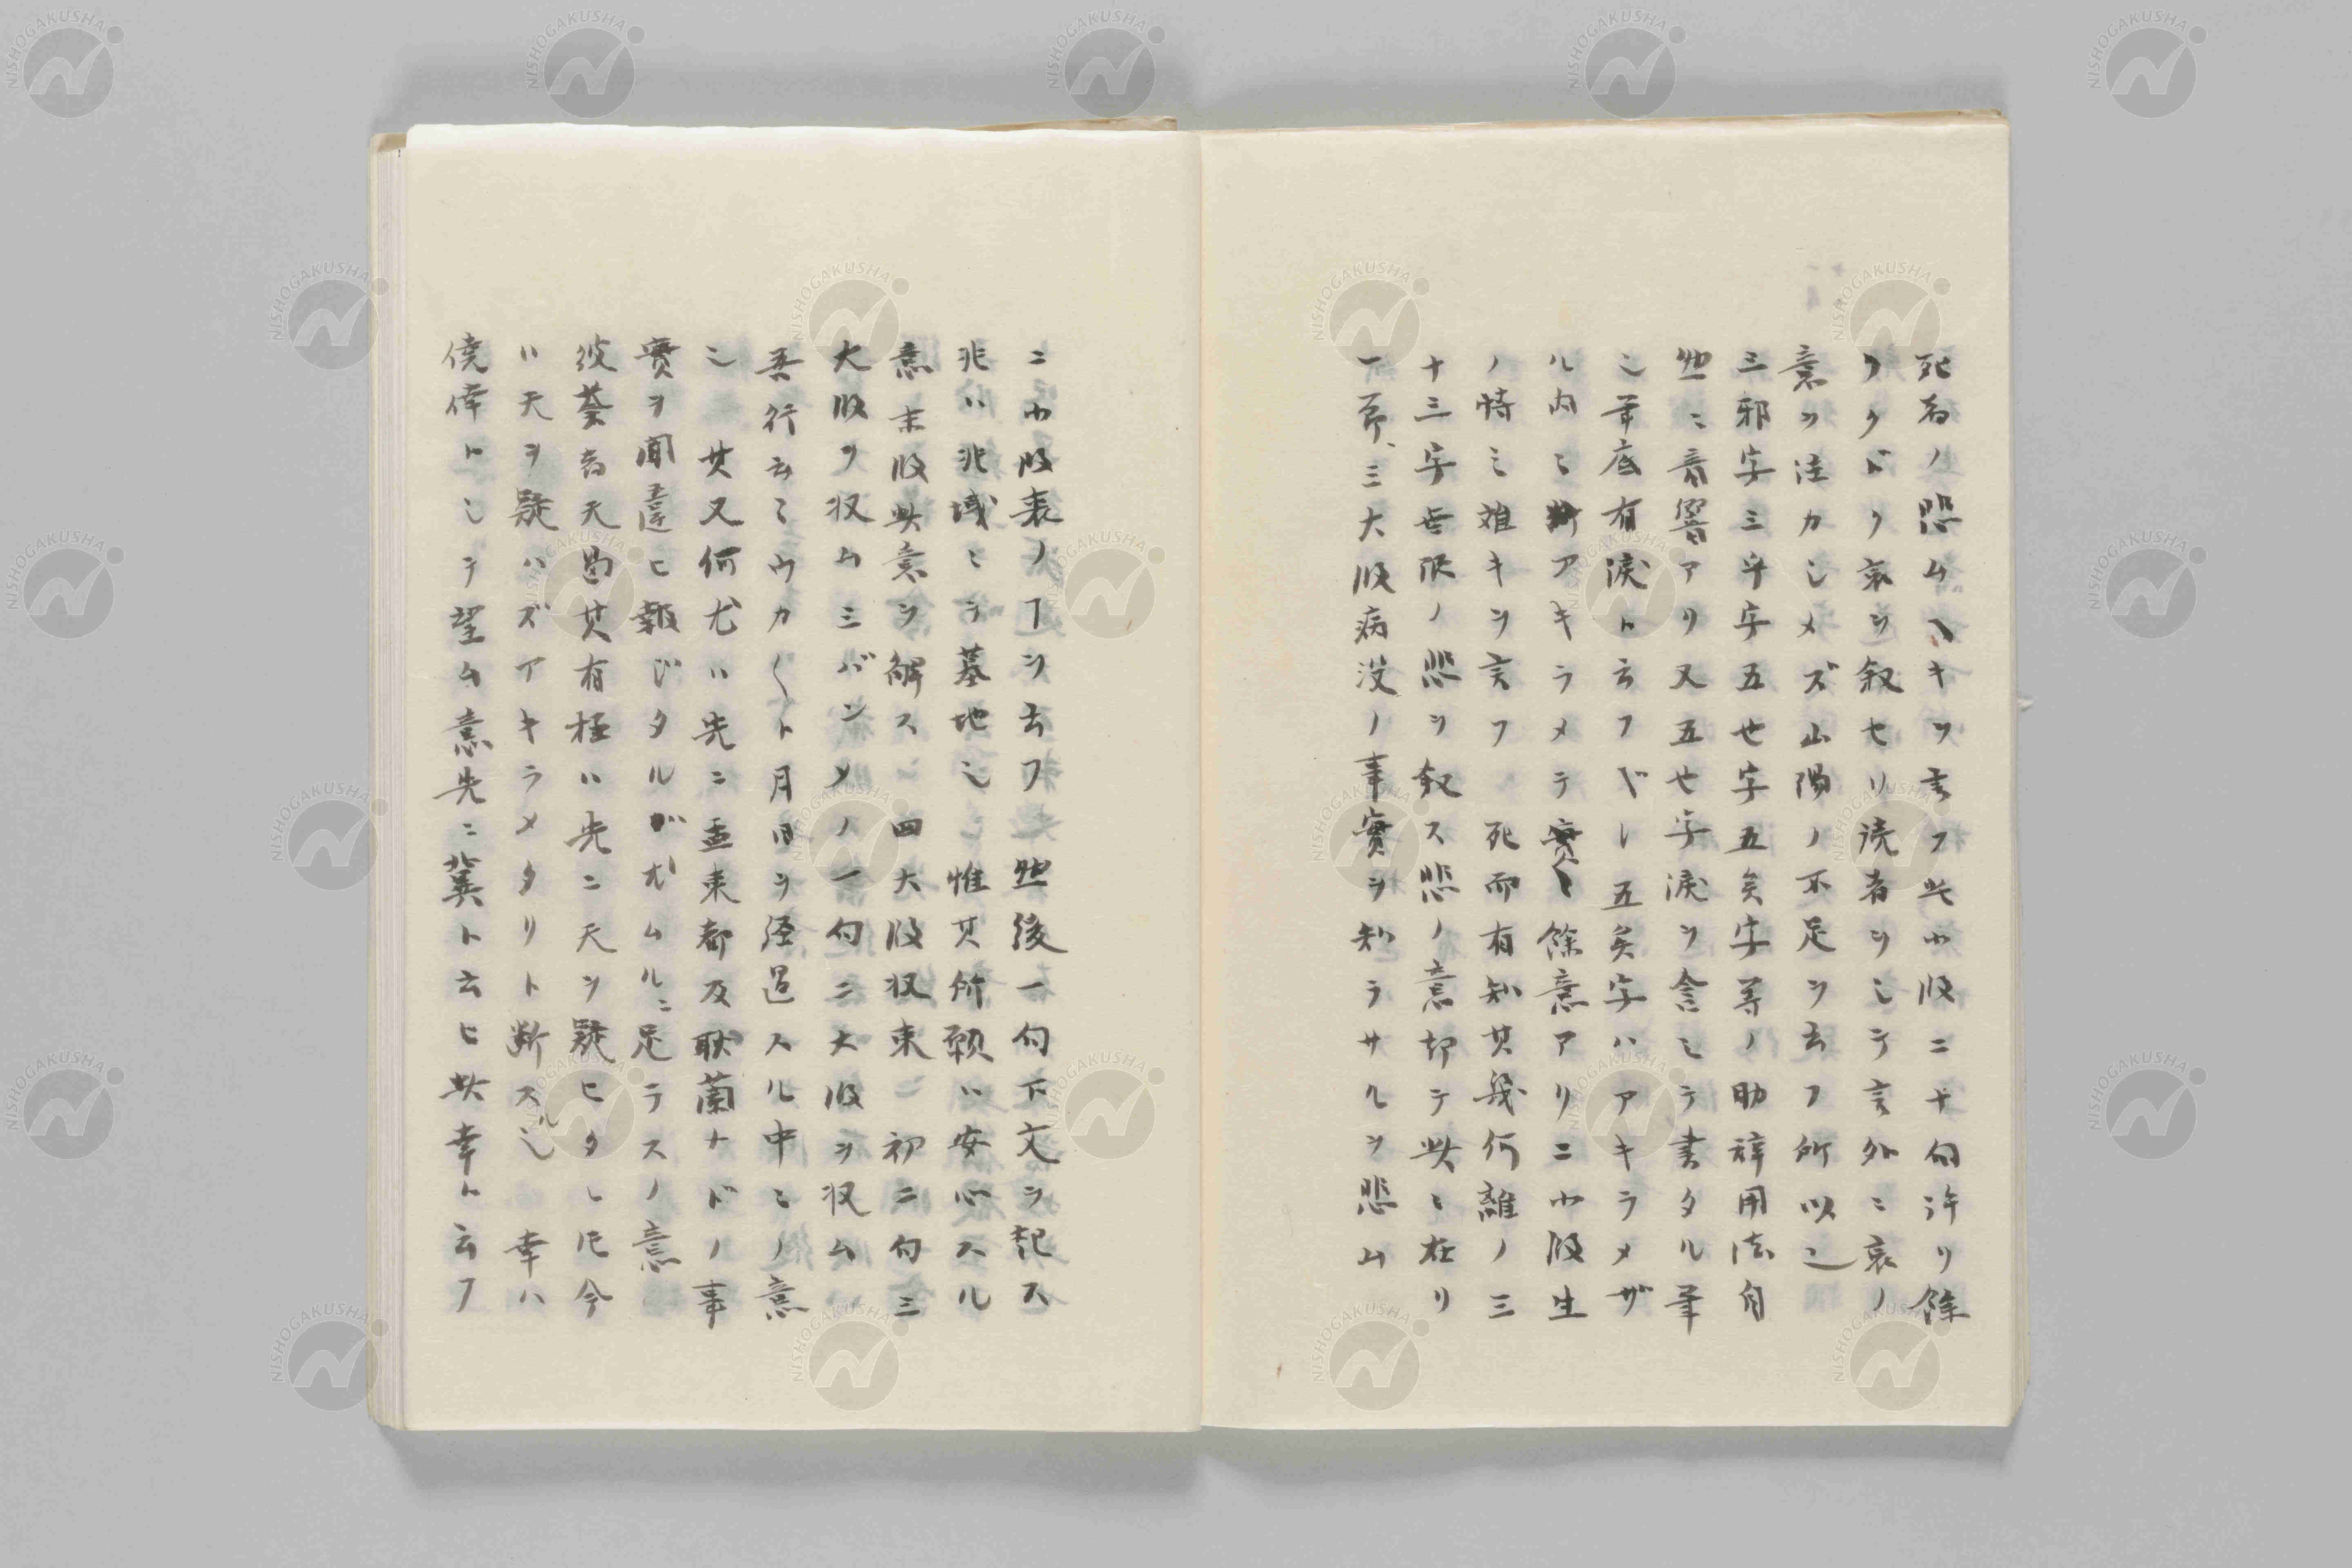 死者ノ悲ムヘキヲ言フ此小段二十句許リ餘
フクドク哀ヲ叙セリ読者ヲシテ言外ニ哀ノ
意ヲ注カシメズ山陽ノ不足ヲ云フ所以也
三邪字三乎字五也字五矣字等ノ助辞用法自
然ニ音響アリ又五也字涙ヲ含ミテ書タル筆
ニ筆底有涙ト云フベシ五矣字ハアキラメザ
ル内ニ断アキラメテ實ニ餘意アリ二小段生
ノ恃ミ難キヲ言フ 死而有知其幾何離ノ三
十三字無限ノ悲ヲ叙ス悲ノ意却テ此ニ在リ
一節、三大段病没ノ事實ヲ知ラサルヲ悲ム
二小段表ノ丁ヲ云フ 然後一句下文ヲ起ス
兆ハ兆域ニテ墓地也 惟其所願ハ安心スル
意 末段此意ヲ解ス 四大段収束 初二句三
大段ヲ収ムミバンメノ一句ニ大段ヲ収ム
吾行云云ウカ〱ト月日ヲ経過スル中ニノ意
也 其又何尤ハ先ニ孟東都及耿蘭ナドノ事
實ヲ聞違ヒ報ジタルガ尤ムルニ足ラスノ意
彼蒼者天曷其有極ハ先ニ天ヲ疑ヒタレ𪜈今
ハ天ヲ疑ハズアキラメタリト断スル也 幸ハ
僥倖トシテ望ム意先ニ冀ト云ヒ此幸ト云フ